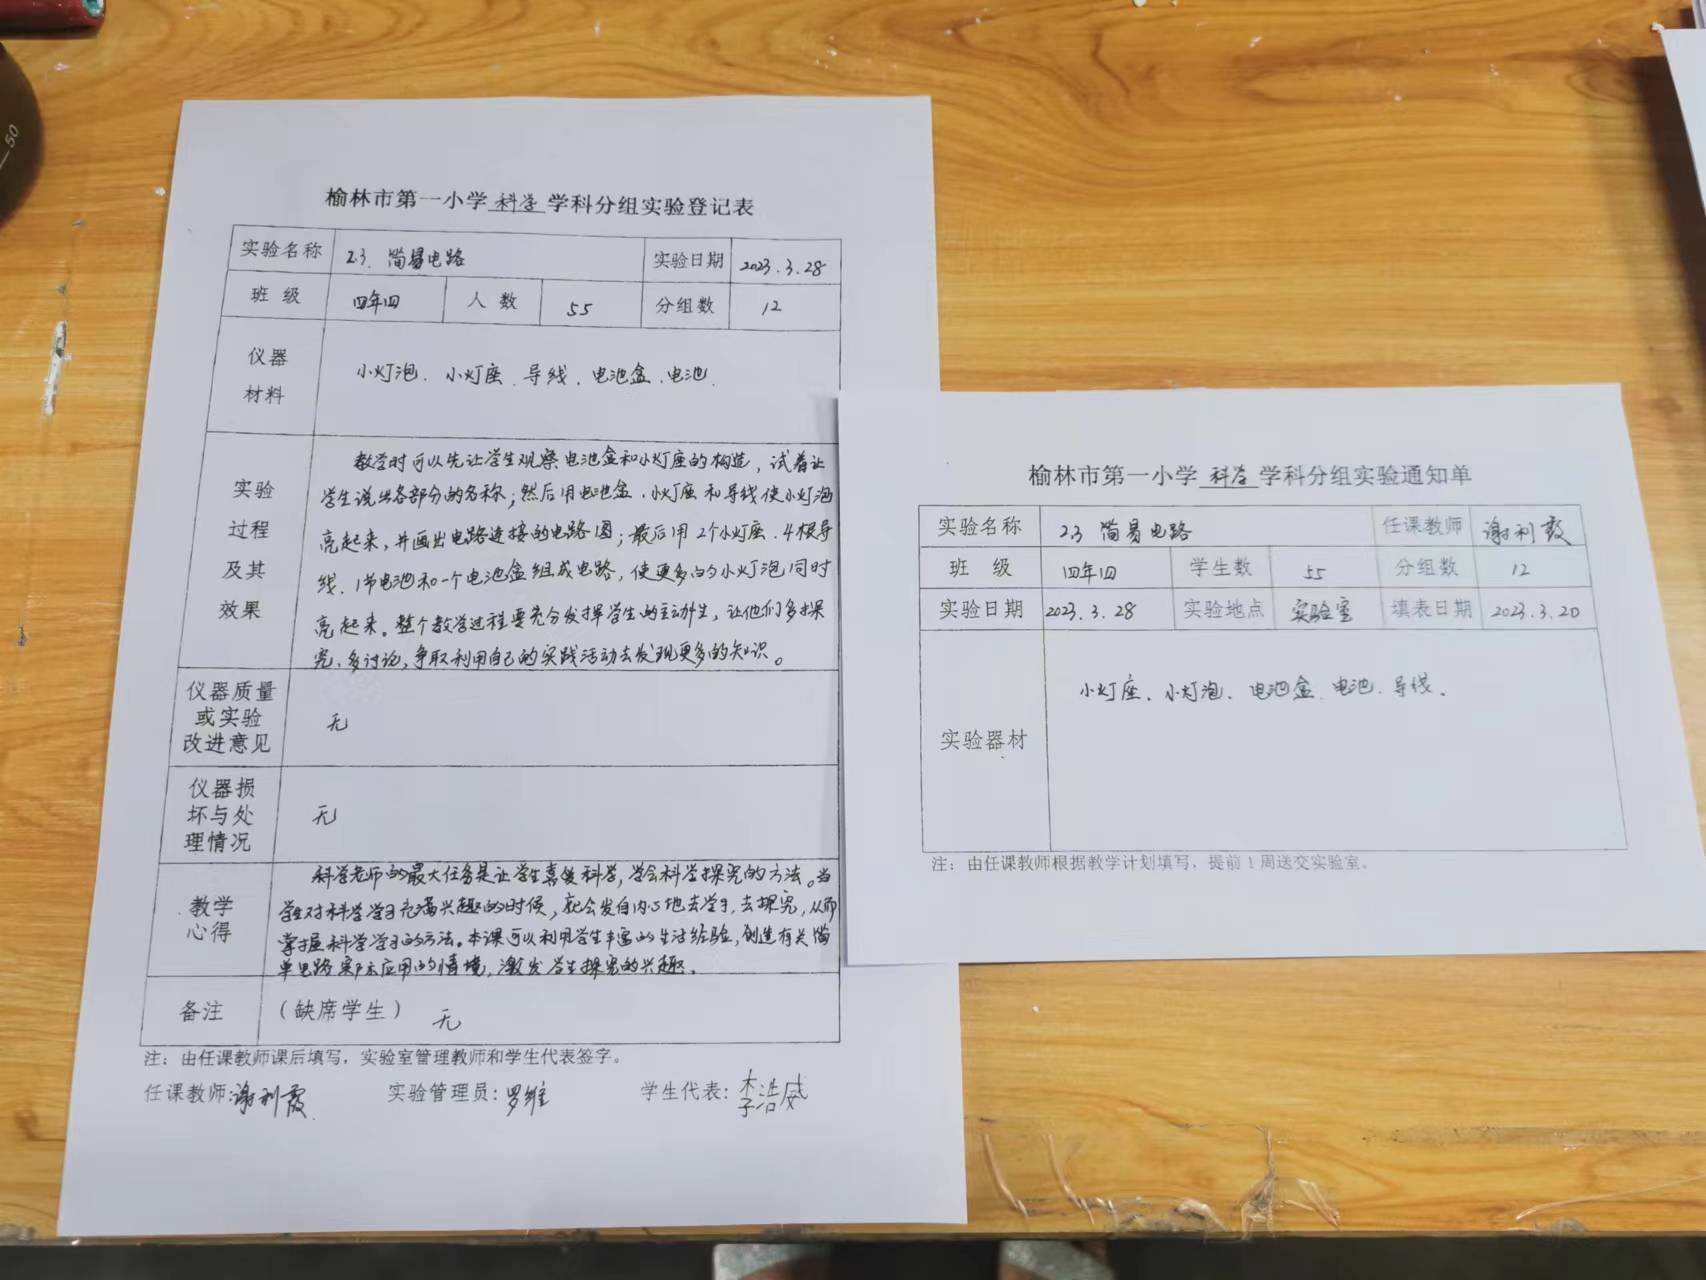 50
榆林市第一小学 科学 学科分组实验登记表
实验名称 2.3. 简易电路 实验日期 2023.3.28
班 级 四年四 人 数 55 分组数 12
仪器
材料
小灯泡、小灯座、导线、电池盒、电池.
实验
过程
及其
效果
教学时可以先让学生观察电池盒和小灯座的构造，试着让
学生说出各部分的名称；然后用电池盒、小灯座和导线使小灯泡
亮起来，并画出电路连接的电路图；最后用2个小灯座、4根导
线、1节电池和一个电池盒组成电路，使更多的小灯泡同时
亮起来。整个教学过程要充分发挥学生的主动性，让他们多探
究、多讨论，争取利用自己的实践活动去发现更多的知识。
仪器质量
或实验
改进意见
无
仪器损
坏与处
理情况
无
教学
心得
科学老师的最大任务是让学生喜爱科学，学会科学探究的方法。当
学生对科学学习充满兴趣的时候，就会发自内心地去学习，去探究，从而
掌握科学学习的方法。本课可以利用学生丰富的生活经验，创造有关简
单电路实际应用的情境，激发学生探究的兴趣。
备注 （缺席学生） 无
注：由任课教师课后填写，实验室管理教师和学生代表签字。
任课教师:谢利霞 实验管理员:罗维 学生代表:李浩威
榆林市第一小学 科学 学科分组实验通知单
实验名称 2.3 简易电路 任课教师 谢利霞
班 级 四年四 学生数 55 分组数 12
实验日期 2023.3.28 实验地点 实验室 填表日期 2023.3.20
实验器材
小灯座、小灯泡、电池盒、电池、导线.
注：由任课教师根据教学计划填写，提前1周送交实验室。